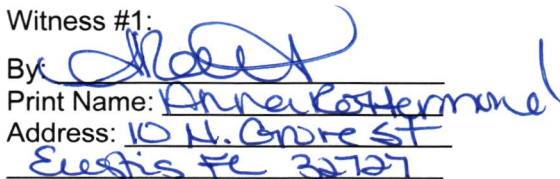 Witness #1:
By:
Print Name: Anna
Address: 10 N. Grove ST
Eustis FL 32727